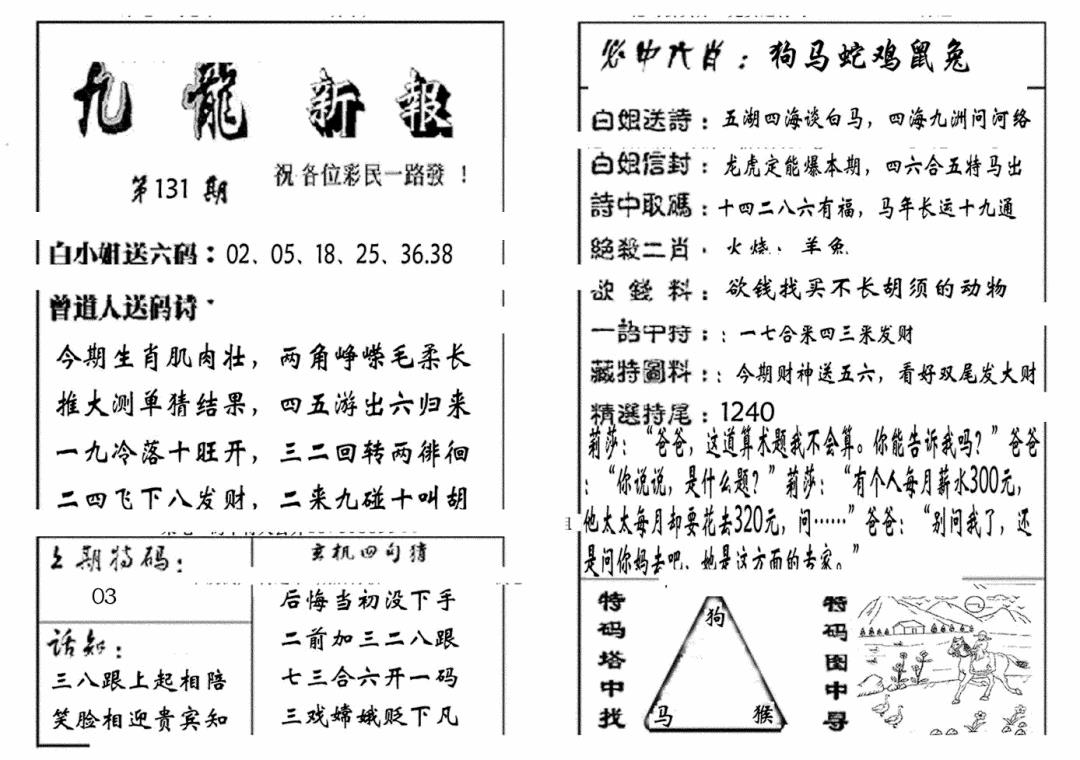 九龍新報
第131期
祝各位彩民一路發！
白小姐送六码：02、05、18、25、36.38
曾道人送码诗
今期生肖肌肉壮，两角峥嵘毛柔长
推大测单猜结果，四五游出六归来
一九冷落十旺开，三二回转两徘徊
二四飞下八发财，二来九碰十叫胡
上期特码：
03
话知：
三八跟上起相陪
笑脸相迎贵宾知
玄机四句猜
后悔当初没下手
二前加三二八跟
七三合六开一码
三戏嫦娥贬下凡
必中六肖：狗马蛇鸡鼠兔
白姐送詩：五湖四海谈白马，四海九洲问河络
白姐信封：龙虎定能爆本期，四六合五特马出
詩中取碼：十四二八六有福，马年长运十九通
絕殺二肖：火烧、羊兔
欲錢料：欲钱找买不长胡须的动物
一語中特：：一七合来四三来发财
藏特圖料：：今期财神送五六，看好双尾发大财
精選特尾：1240
莉莎：“爸爸，这道算术题我不会算。你能告诉我吗？”爸爸
：“你说说，是什么题？”莉莎：“有个人每月薪水300元，
他太太每月却要花去320元，问……”爸爸：“别问我了，还
是问你妈去吧，她是这方面的专家。”
特码塔中找
狗
马
猴
特码图中寻